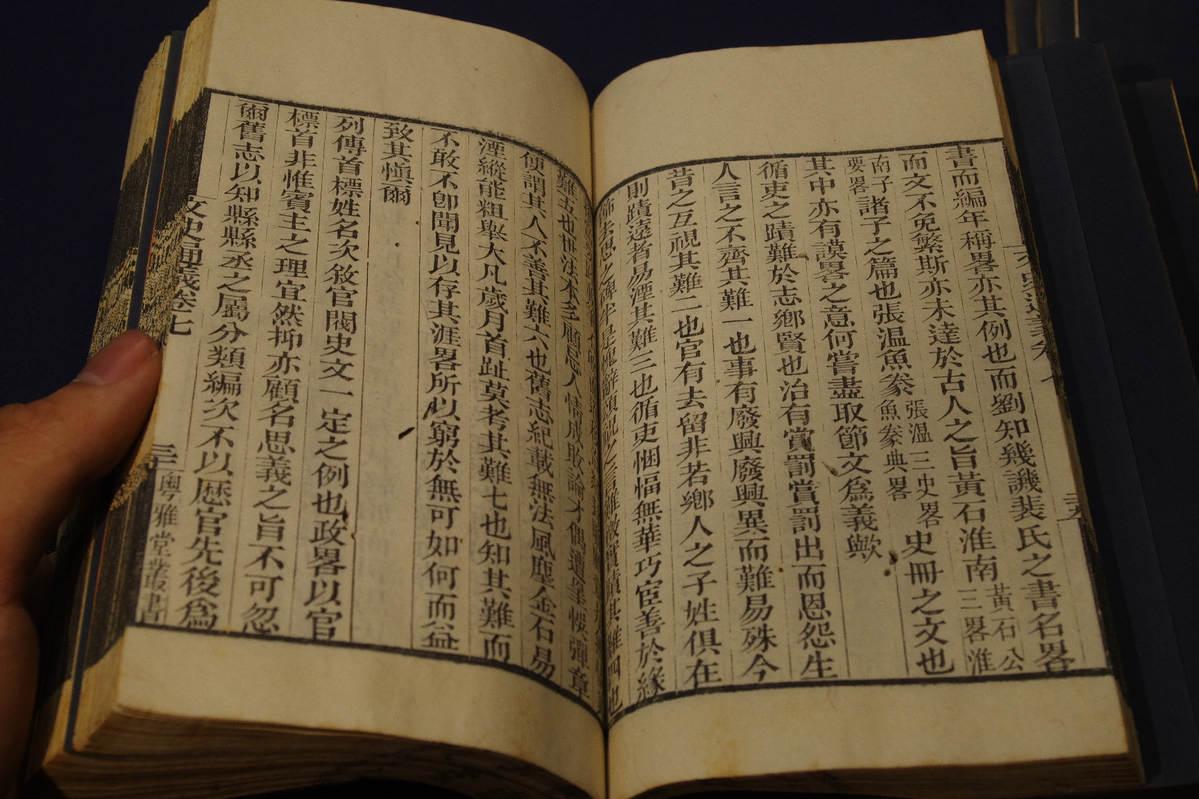 書而編年稱畧亦其例也而劉知幾譏裴氏之書名畧
而文不免繁斯亦未達於古人之旨黃石淮南黃石公三畧淮
南子要畧諸子之篇也張温魚豢張温三史畧魚豢典畧史冊之文也
其中亦有謨畧之意何嘗盡取節文爲義歟
循吏之蹟難於志鄉賢也治有賞罰賞罰出而恩怨生
人言之不齊其難一也事有廢興廢興異而難易殊今
昔之互視其難二也官有去留非若鄉人之子姓俱在
則蹟遠者易湮其難三也循吏悃愊無華巧宦善於緣
去思之碑半是
難五也
便謂其人不善其難六也舊志紀載無法風塵金石易
湮縱能粗舉大凡歲月首趾莫考其難七也知其難而
不敢不卽聞見以存其涯畧所以窮於無可如何而益
致其愼爾
列傳首標姓名次敘官閥史文一定之例也政畧以官
標首非惟賓主之理宜然抑亦顧名思義之旨不可忽
爾舊志以知縣縣丞之屬分類編次不以歷官先後爲
文史通義卷七
粵雅堂叢書